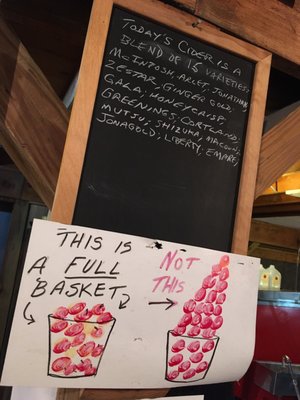 TODAY'S CIDER IS A
BLEND OF 18 VARIETIES:
MCINTOSH, ARLET, JONATHAN,
ZESTAR, GINGER GOLD,
GALA, HONEYCRISP,
GREENINGS, CORTLAND,
MUTSU, SHIZUKA, MACOUN,
JONAGOLD, LIBERTY, EMPIRE,
THIS IS
A FULL
BASKET
NOT
THIS